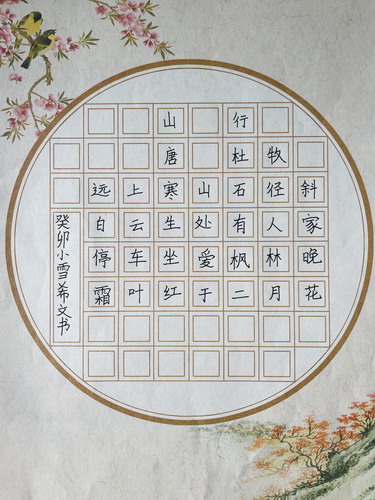 山行
唐 杜牧
远上寒山石径斜
白云生处有人家
停车坐爱枫林晚
霜叶红于二月花
癸卯小雪希文书